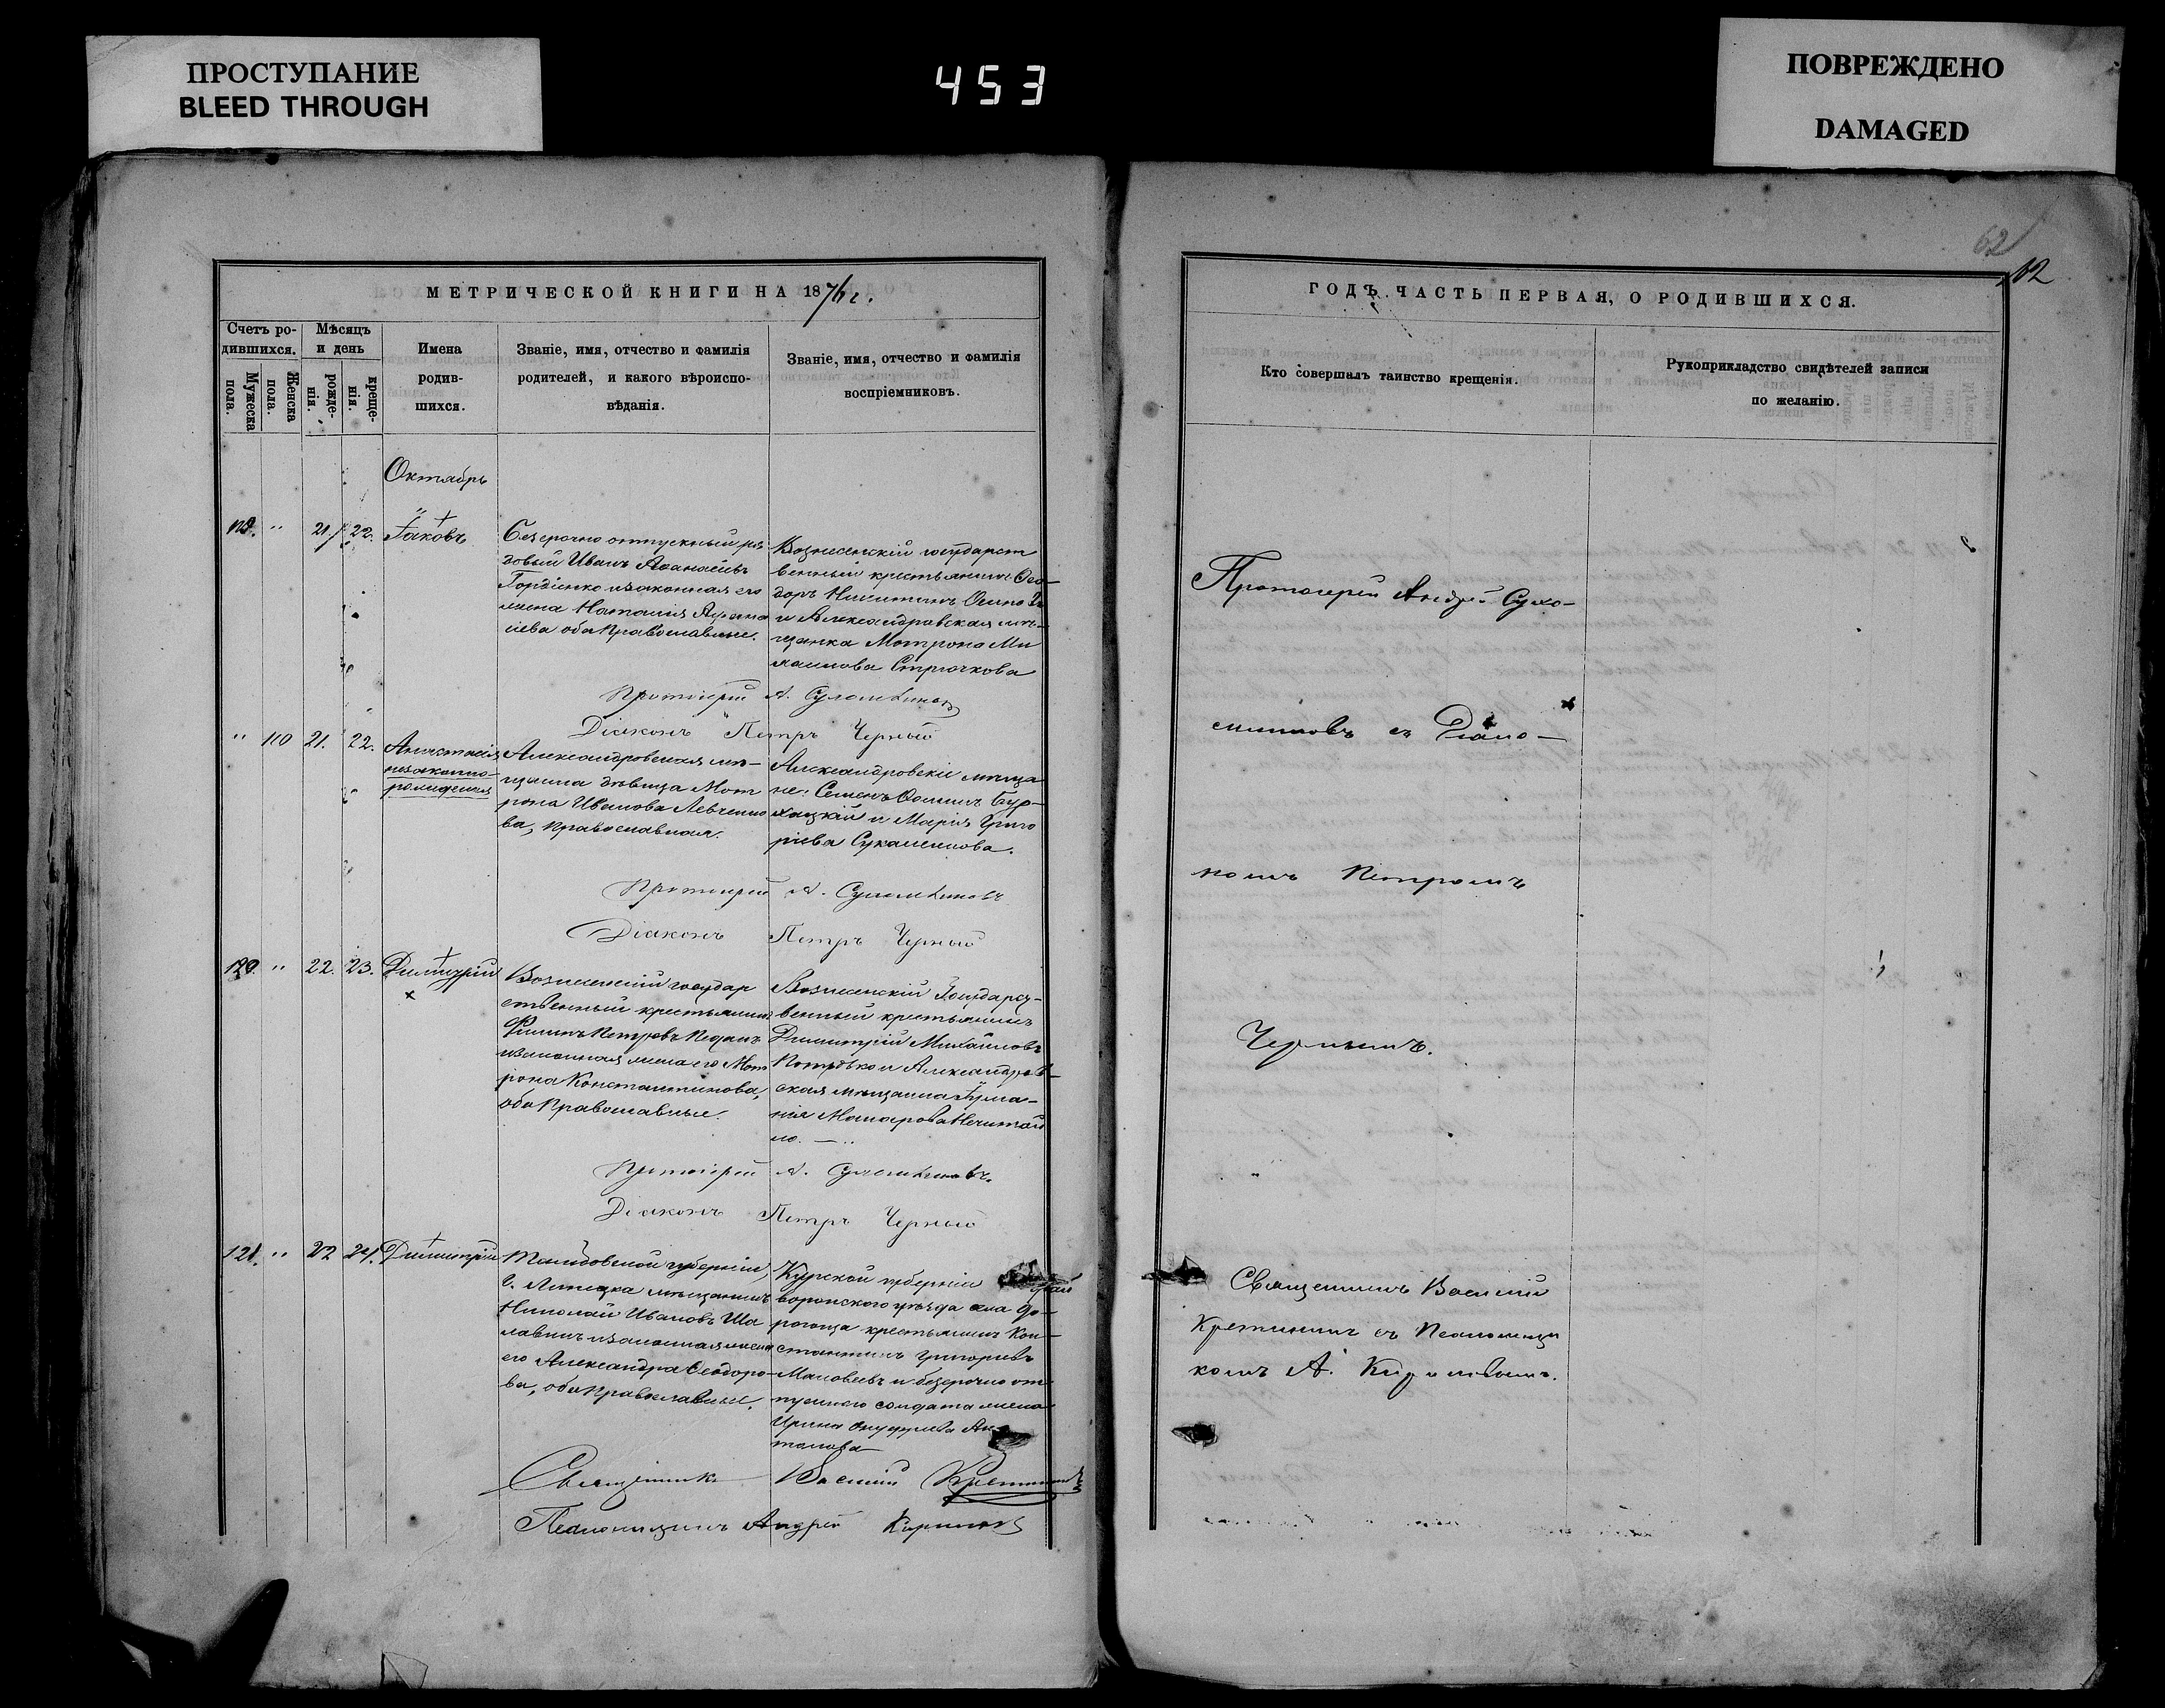 ПРОСТУПАНИЕ
BLEED THROUGH
453
ПОВРЕЖДЕНО
DAMAGED
62
62
МЕТРИЧЕСКОЙ КНИГИ НА 1876 г.
Счетъ ро-
дившихся.
Мужеска
пола.
Женска
пола.
Мѣсяцъ
и день
рожде-
нія.
креще-
нія.
Имена
родив-
шихся.
Званіе, имя, отчество и фамилія
родителей, и какого вѣроиспо-
вѣданія.
Званіе, имя, отчество и фамилія
воспріемниковъ.
Октябрь
" 21. 22. Іаковъ
Безсрочно отпускный ря
довый Иванъ Аѳанасіевъ
Гордіенко и законная его
жена Наталія
оба православные.
Вознесенскій государст
венный крестьянинъ Ѳео-
доръ Никитинъ
и Александровская мѣ-
щанка Мотрона Ми
хаилова Стрючкова
Протоіерей А. Сулошниковъ
Діаконъ Петръ Черный
" 110 21. 22. Анастасія
незаконно-
рожденная
Александровская мѣ-
щанка дѣвица Мот
рона Иванова Левченко
ва, православная.
Александровскіе мѣща
не: Семенъ Ѳоминъ Бур-
хацкій и Марія Григо
ріева
Протоіерей А.
Діаконъ Петръ Черный
120. " 22. 23. Димитрій
Вознесенскій государ
ственный крестьянинъ
Филипъ Петровъ
и законная жена его Мот
рона Константинова,
оба православные.
Вознесенскій Государст-
венный крестьянинъ
Димитрій Михайловъ
и Александров-
ская мѣщанка Іулиа-
нія Макарова Нечитай
ло.
Протоіерей А.
Діаконъ Петръ Черный
121. " 22 24. Димитрій
Тамбовской губерніи,
г. Липецка мѣщанинъ
Николай Ивановъ Ша
лавинъ и законная жена
его Александра Ѳеодоро-
ва, оба православные.
Курской губерніи
воронскаго уѣзда села До-
рогоща крестьянинъ Кон-
стантинъ Григорьевъ
и безсрочно от-
пускнаго солдата жена
Ирина Онуфріева Ан
тонова
Священникъ Василій Кретининъ
Псаломщикъ Андрей Кириловъ
ГОДЪ. ЧАСТЬ ПЕРВАЯ, О РОДИВШИХСЯ.
Кто совершалъ таинство крещенія.
Рукоприкладство свидѣтелей записи
по желанію.
Протоіерей Андрей Суло-
шниковъ съ Діако-
номъ Петромъ
Чернымъ.
Священникъ Василій
Кретининъ съ Псаломщи
комъ А. Кириловымъ.